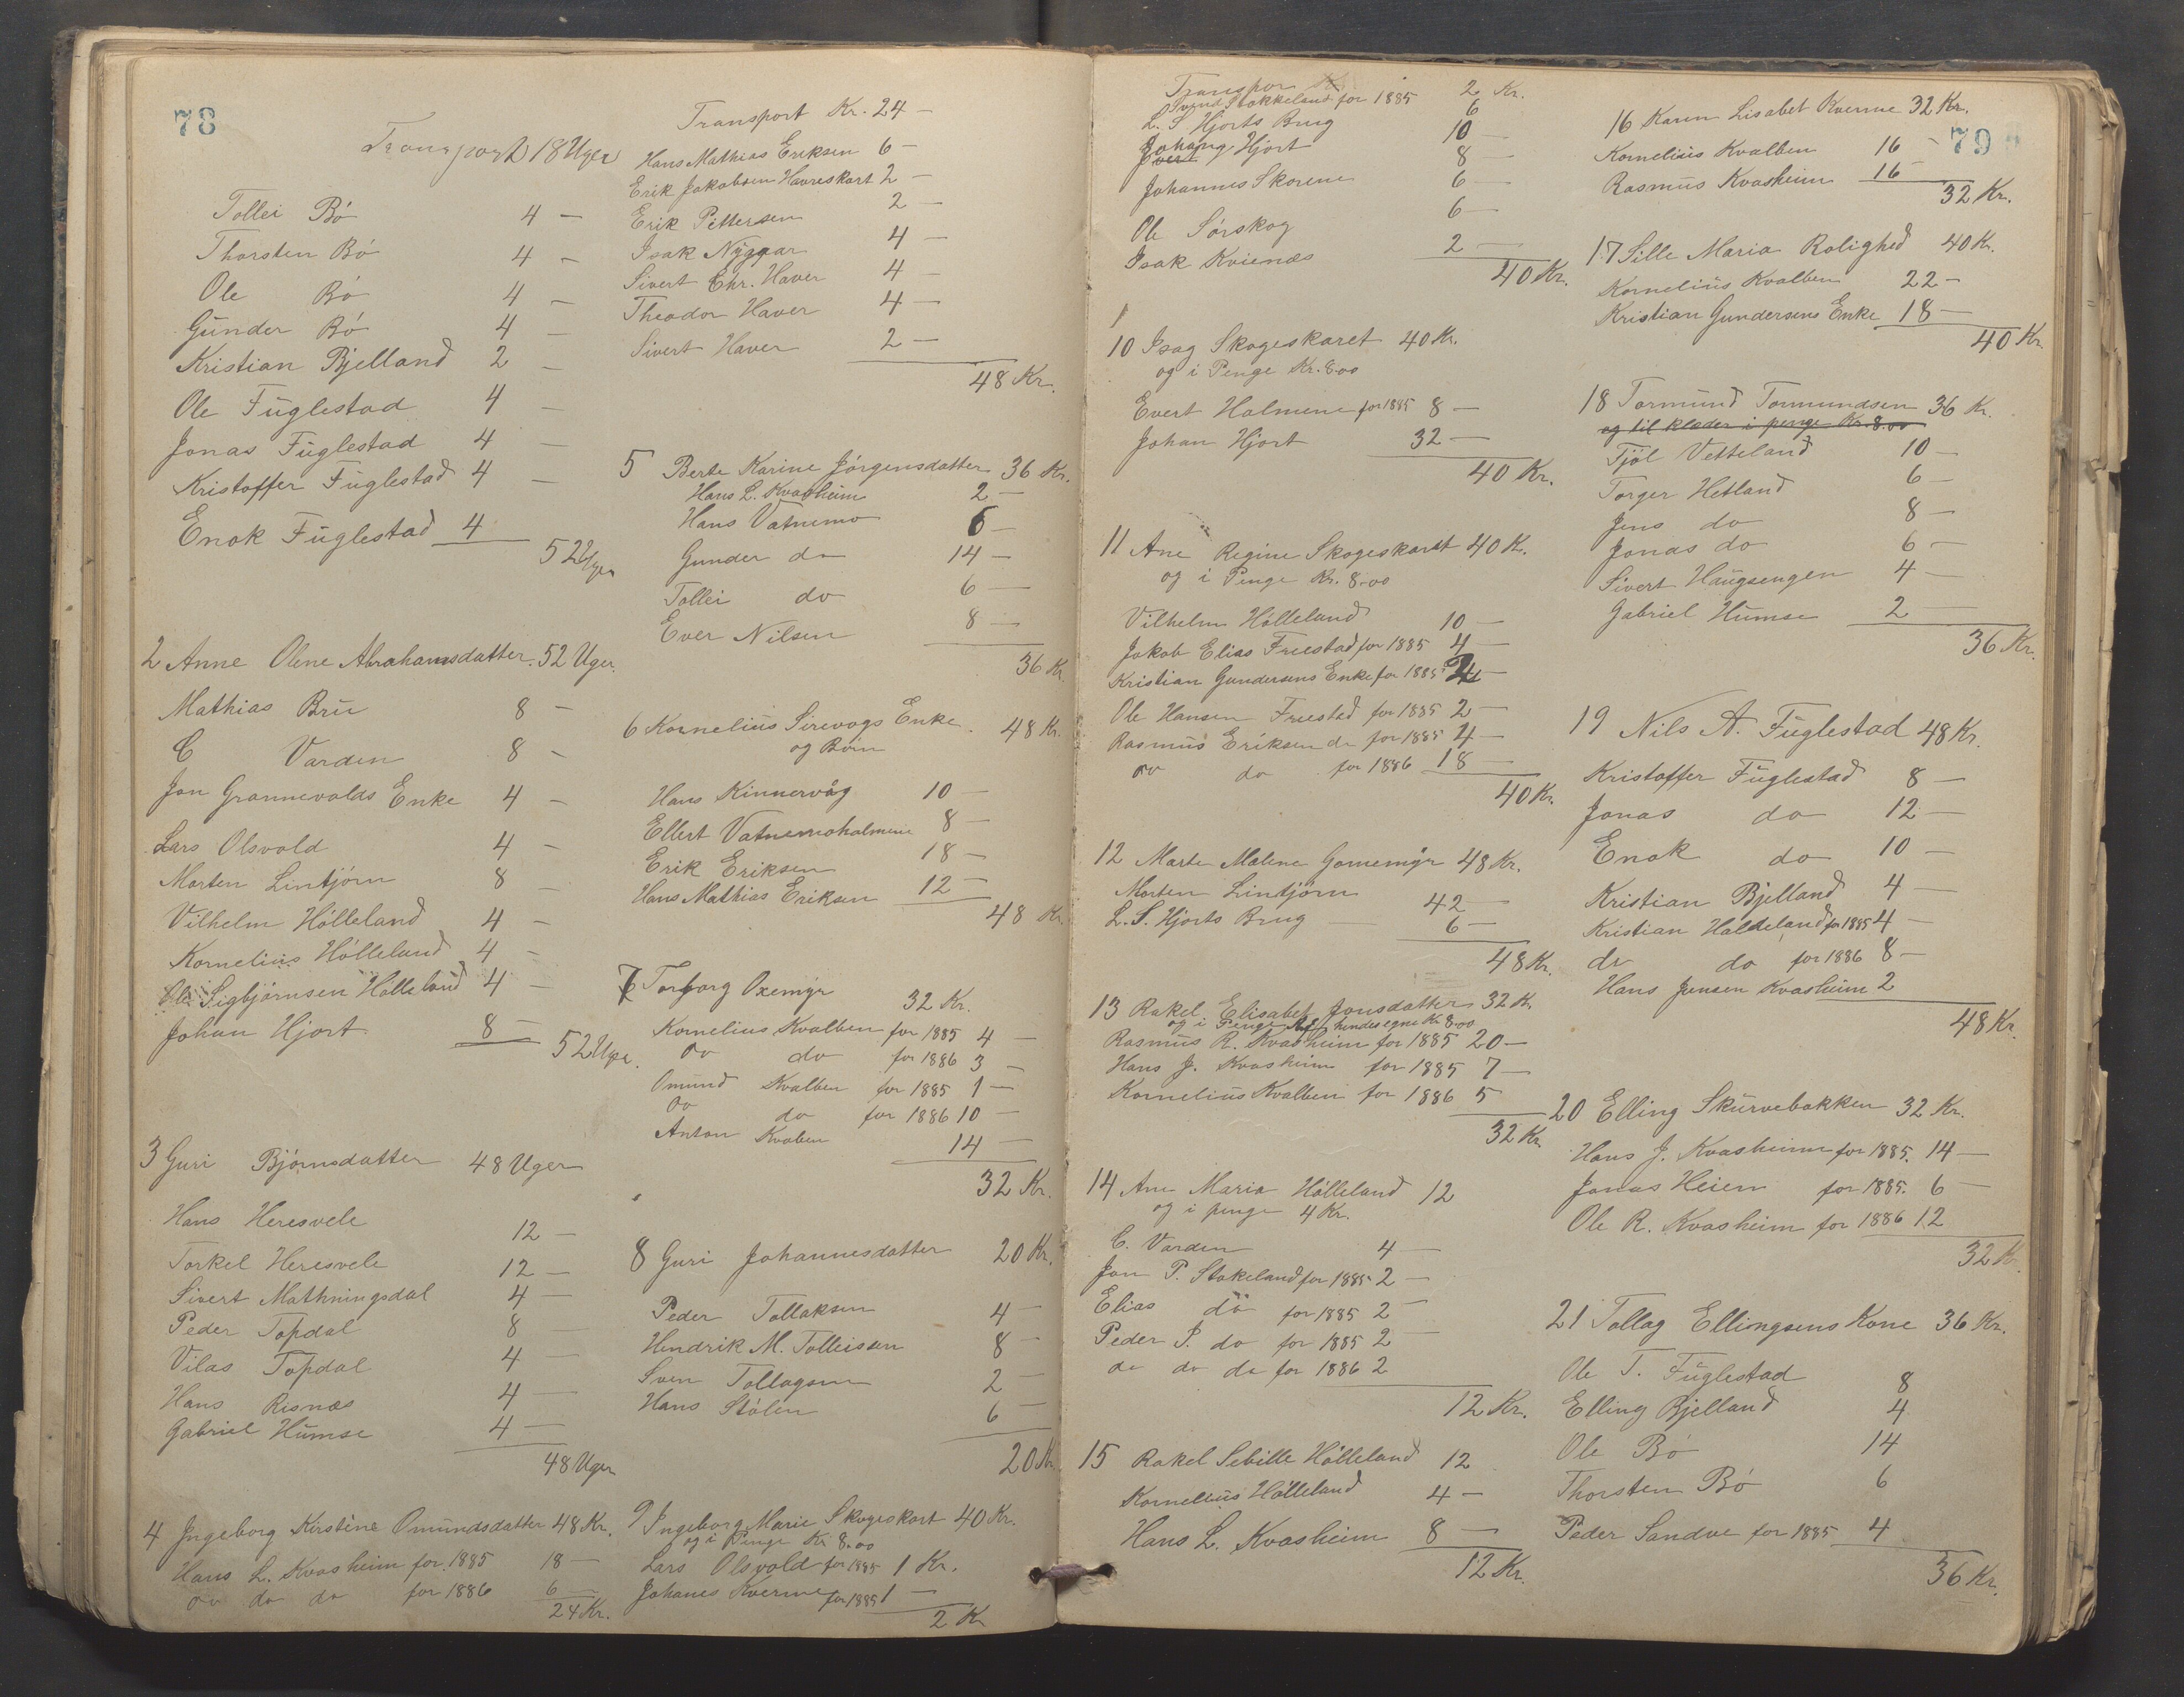 78
Transport 18 Uger
Tollei Bö 4 —
Thorsten Bö 4 —
Ole Bö 4 —
Gunder Bö 4 —
Kristian Bjelland 2 —
Ole Fuglestad 4 —
Jonas Fuglestad 4 —
Kristoffer Fuglestad 4 —
Enok Fuglestad 4
52 Uger
2 Anne Olene Abrahamsdatter 52 Uger.
Mathias Bru 8 —
C Varden 8 —
Jon Grannevolds Enke 4 —
Lars Olsvold 4 —
Morten Lintjörn 8 —
Vilhelm Hölleland 4 —
Kornelius Hölleland 4 —
Ole Sigbjörnsen Hölleland 4 —
Johan Hjort 8 —
52 Uger.
3 Guri Björnsdatter 48 Uger
Hans Heresvele 12 —
Torkel Heresvele 12 —
Sivert Mathningsdal 4 —
Peder Topdal 8 —
Vilas Topdal 4 —
Hans Risnæs 4 —
Gabriel Humse 4 —
48 Uger
4 Ingeborg Kirstine Omundsdatter 48 Kr.
Hans L. Kvasheim for 1885 18 —
do do do for 1886 6 —
24 Kr.
Transport Kr. 24 —
Hans Mathias Eriksen 6 —
Erik Jakobsen Havreskart 2 —
Erik Pettersen 2 —
Isak Nÿggar 4 —
Sivert Chr. Haver 4 —
Theodor Haver 4 —
Sivert Haver 2 —
48 Kr.
5 Berte Karine Jörgensdatter 36 Kr.
Hans L. Kvasheim 2 —
Hans Vatnemo 6 —
Gunder do 14 —
Tollei do 6 —
Ever Nilsen 8 —
36 Kr.
6 Kornelius Sirevogs Enke 48 Kr.
og Börn
Hans Kinnervåg 10 —
Ellert Vatnemoholmene 8 —
Erik Eriksen 18 —
Hans Mathias Eriksen 12 —
48 Kr.
7 Torborg Oxemyr 32 Kr.
Kornelius Kvalben for 1885 4 —
do do for 1886 3 —
Omund Kvalben for 1885 1 —
do do for 1886 10 —
Anton Kvalben 14 —
32 Kr.
8 Guri Johannesdatter 20 Kr.
Peder Tollaksen 4 —
Hendrik M. Tolleissen 8 —
Sven Tollagsen 2 —
Hans Stölen 6 —
20 Kr.
9 Ingeborg Marie Skogeskart 40 Kr.
og i Penge Kr 8.00
Lars Olsvold for 1885 1 Kr.
Johanes Kverme for 1885 1 —
2 Kr
Transpor Kr. 2 Kr.
Svend Stokkeland for 1885 6
L. S Hjorts Brug 10 —
Johan Hjort 8 —
Johannes Skorene 6 —
Ole Sörskog 6 —
Isak Kvienæs 2 —
40 Kr.
10 Isag Skogeskaret 40 Kr.
og i Penge Kr. 8.00
Evert Holmene for 1885 8 —
Johan Hjort 32 —
40 Kr.
11 Ane Regine Skogeskaret 40 K.
og i Penge Kr. 8.00
Vilhelm Hölleland 10 —
Jakob Elias Fruestad for 1885 4 —
Kristian Gundersens Enke for 1885 2 —
Ole Hansen Fruestad for 1885 2 —
Rasmus Eriksen do for 1885 4 —
do do for 1886 18 —
40 Kr.
12 Marte Malene Gomemyr 48 Kr.
Morten Lintjörn 42 —
L. S. Hjorts Brug 6 —
48 Kr.
13 Rakel Elisabet Jonsdatter 32 K
og i Penge Af hendes egne Kr 8.00
Rasmus R. Kvasheim for 1885 20 —
Hans J. Kvasheim for 1885 7 —
Kornelius Kvalben for 1886 5
32 Kr.
14 Ane Maria Hölleland 12
og i penge 4 Kr.
C. Varden 4 —
Jon P. Stokeland for 1885 2 —
Elias do for 1885 2 —
Peder P. do for 1885 2 —
do do do for 1886 2
12 Kr.
15 Rakel Sebille Hölleland 12
Kornelius Hölleland 4 —
Hans L. Kvasheim 8 —
12 Kr.
79
16 Karen Lisabet Kverme 32 Kr.
Kornelius Kvalben 16 —
Rasmus Kvasheim 16 —
32 Kr.
17 Sille Maria Rolighed 40 Kr.
Kornelius Kvalben 22 —
Kristian Gundersens Enke 18 —
40 Kr.
18 Tormund Tormundsen 36 Kr.
og til klæder i penge Kr. 8.00
Tjöl Vetteland 10 —
Torger Hetland 6 —
Jens do 8 —
Jonas do 6 —
Sivert Haugsengen 4 —
Gabriel Humse 2
36 Kr.
19 Nils A. Fuglestad 48 Kr.
Kristoffer Fuglestad 8 —
Jonas do 12 —
Enok do 10 —
Kristian Bjelland 4 —
Kristian Haldeland for 1885 4 —
do do for 1886 8 —
Hans Jensen Kvasheim 2
48 Kr
20 Elling Skurvebakken 32 Kr.
Hans J. Kvasheim for 1885. 14 —
Jonas Heien for 1885. 6 —
Ole R. Kvasheim for 1886 12
32 Kr.
21 Tollag Ellingsens Kone 36 Kr.
Ole T. Fuglestad 8
Elling Bjelland 4
Ole Bö 14
Thorsten Bö 6
Peder Sandve for 1885 4
36 Kr.